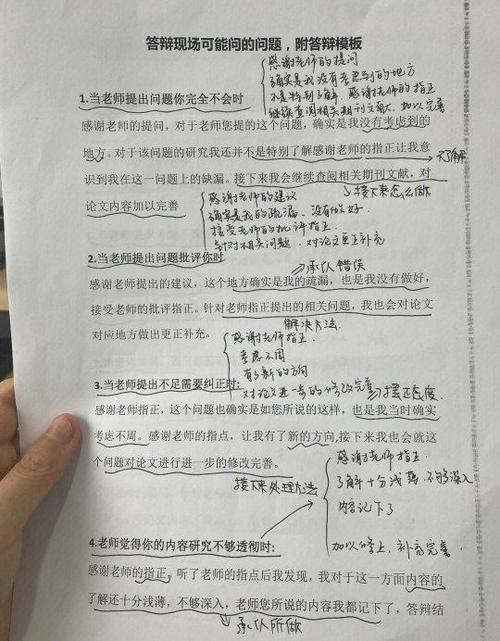 答辩现场可能问的问题，附答辩模板
感谢老师的提问
确实是我没有考虑到的地方
不是特别了解，感谢老师的指正
继续查阅相关期刊文献，加以完善
1.当老师提出问题你完全不会时
感谢老师的提问，对于老师您提的这个问题，确实是我没有考虑到的
地方。对于该问题的研究我还并不是特别了解感谢老师的指正让我意
不了解
识到我在这一问题上的缺漏。接下来我会继续查阅相关期刊文献，对
论文内容加以完善
接下来怎么做
感谢老师的建议
确实是我的疏漏，没有做好
接受老师的批评指正
针对相关问题，对论文更正补充
2.当老师提出问题批评你时
承认错误
感谢老师提出的建议，这个地方确实是我的疏漏，也是我没有做好，
接受老师的批评指正。针对老师指正提出的相关问题，我也会对论文
对应地方做出更正补充。
解决方法
感谢老师指正
考虑不周
有了新的方向
对论文进一步的修改完善
摆正态度
3.当老师提出不足需要纠正时：
感谢老师指正，这个问题也确实是如您所说的这样，也是我当时确实
考虑不周。感谢老师的指点，让我有了新的方向,接下来我也会就这
个问题对论文进行进一步的修改完善。
接下来处理方法
感谢老师指正
了解十分浅薄，不够深入
内容记下了
加以修正，补充完善
4.老师觉得你的内容研究不够透彻时：
感谢老师的指正，听了老师的指点后我发现，我对于这一方面内容的
了解还十分浅薄，不够深入，老师您所说的内容我都记下了，答辩结
承认所做